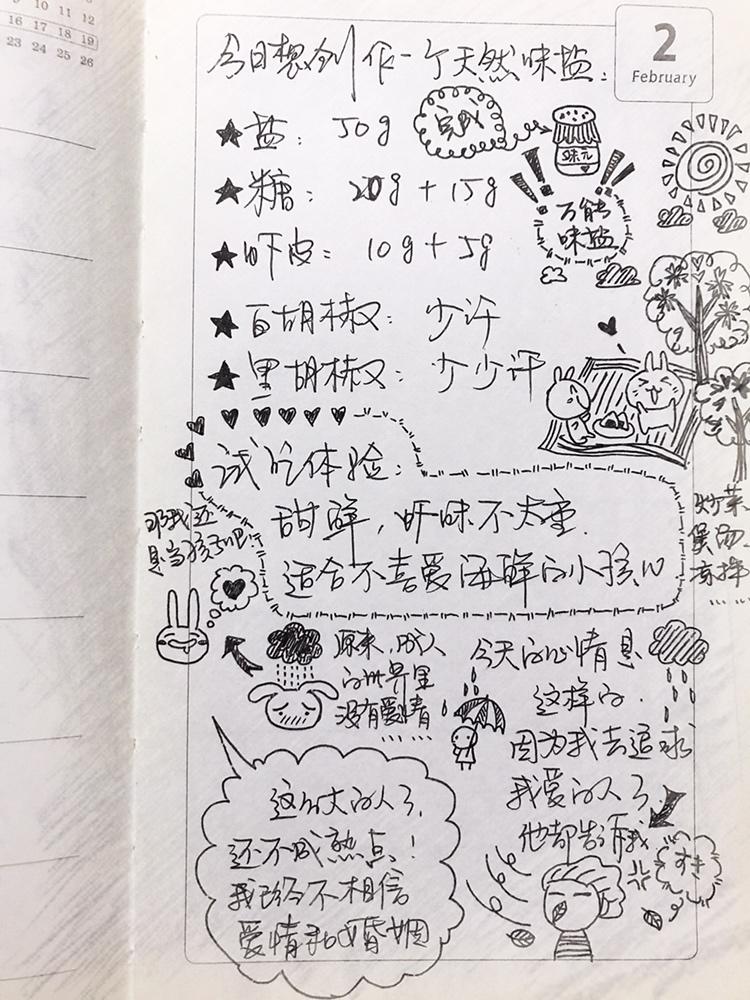 9 10 11 12
16 17 18 19
23 24 25 26
2
February
今日想创作一个天然味盐.
★盐: 50g
完成
味元
★糖: 20g + 15g
万能
味盐
★虾皮: 10g + 5g
★百胡椒: 少许
★黑胡椒: 少少许
试吃体验:
甜鲜, 虾味不太重.
适合不喜爱海鲜的小孩儿
炒菜、
煲汤、
凉拌
......
那我还
是当孩子吧!
原来,成人
的世界里
没有爱情
......
今天的心情是
这样的.
因为我去追求
我爱的人了
他却告诉我
すき
这么大的人了,
还不成熟点!
我已经不相信
爱情和婚姻